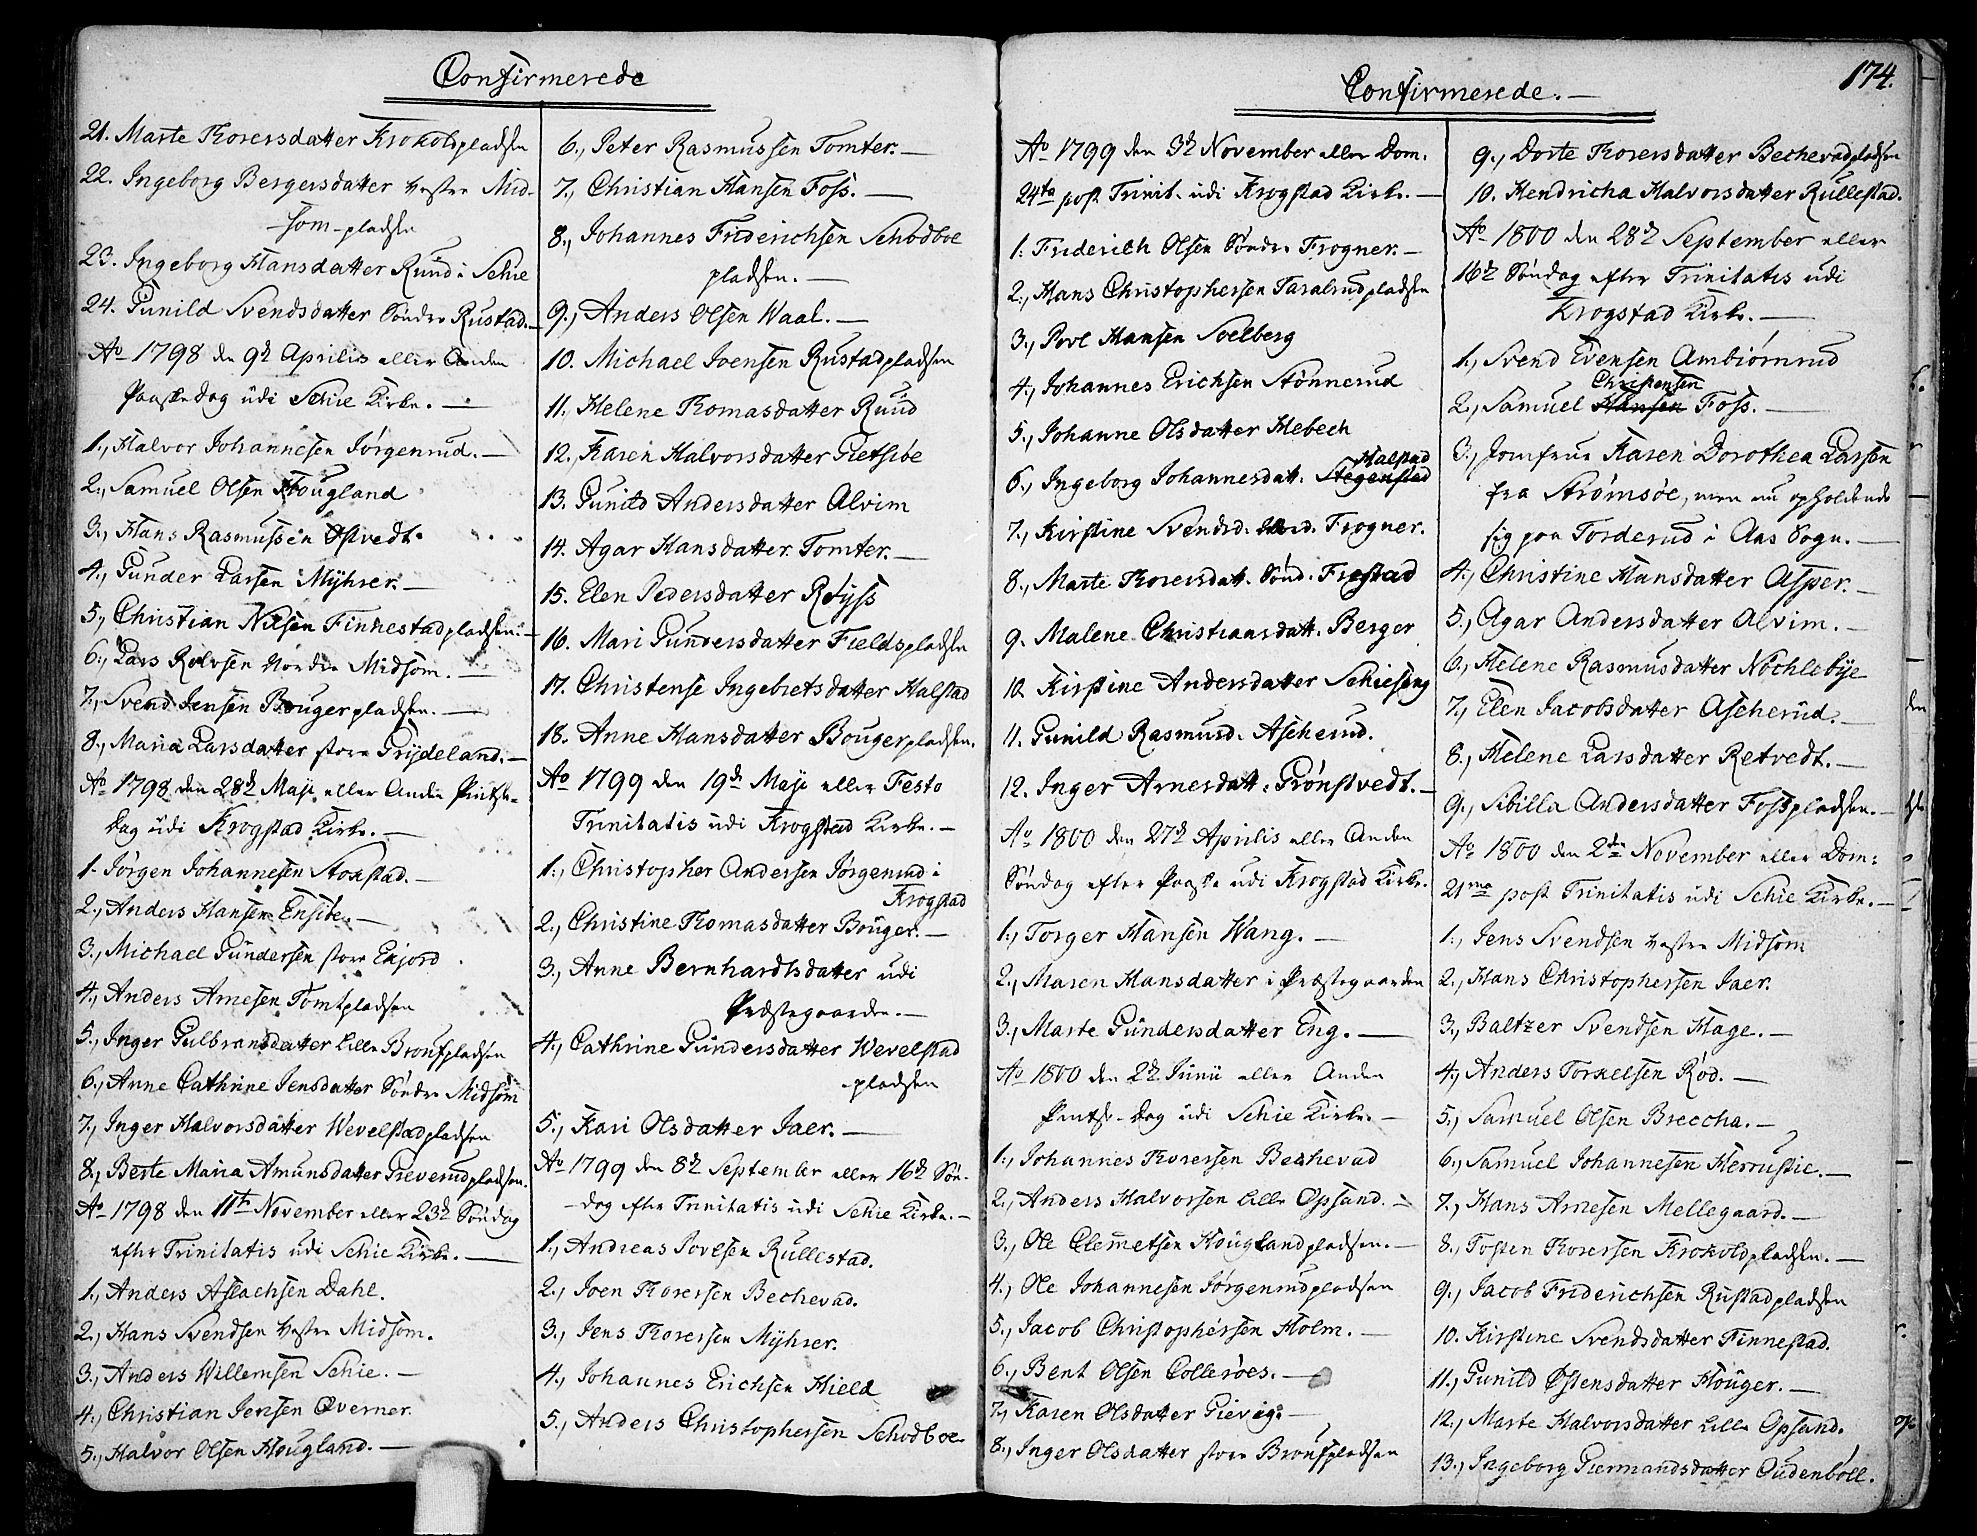 Confirmerede
21. Marte Thorersdatter Krokoldpladsen
22. Ingeborg Bergersdatter Vestre Mid-
som-pladsen
23. Ingeborg Hansdatter Ruud i Schie
24. Gunild Svendsdatter Søndre Rustad.
Ao 1798 den 9de Aprilis eller Anden
Paaske Dag udi Schie Kirke.
1., Halvor Johannesen Jørgenrud.
2., Samuel Olsen Hougland
3., Hans Rasmussen Østvedt.
4., Gunder Larsen Mÿhrer.
5., Christian Nilsen Finnestadpladsen.
6., Lars Rolvsen Nordre Midsom.
7., Svend Jensen Bougerpladsen.
8., Maria Larsdatter store Grÿdeland.
Ao 1798 den 28de Maji eller Anden Pintse-
Dag udi Krogstad Kirke.
1. Jørgen Johannesen Stokstad.
2., Anders Hansen Ensibe.
3., Michael Gundersen store Enjord
4., Anders Arnesen Tomtpladsen
5., Inger Gulbransdatter Lille Bronspladsen
6., Anne Cathrine Jensdatter Søndre Midsom
7., Inger Halvorsdatter Wevelstadpladsen
8., Berte Maria Amundsdatter Greverudpladsen.
Ao 1798 den 11te November eller 23de Søndag
efter Trinitatis udi Schie Kirke.
1., Anders Aslachsen Dahl.
2., Hans Svendsen Vestre Midsom.
3., Anders Willemsen Schie.
4., Christian Jensen Qverner.
5., Halvor Olsen Hougland.
6., Peter Rasmussen Tomter.
7., Christian Hansen Foss.
8., Johannes Friderichsen Schodboe
pladsen.
9., Anders Olsen Waal.
10. Michael Joensen Rustadpladsen
11. Helene Thomasdatter Ruud
12., Karen Halvorsdatter Gietsiøe
13. Gunild Andersdatter Alvim
14. Agar Hansdatter Tomter.
15. Elen Pedersdatter Røyss
16. Mari Gundersdatter Fieldspladsen
17. Christense Ingebretsdatter Halstad
18. Anne Hansdatter Bougerpladsen.
Ao 1799 den 19de Maji eller Festo
Trinitatis udi Krogstad Kirke.
1., Christopher Andersen Jørgenrud i
Krogstad
2., Christine Thomasdatter Bouger.
3., Anne Bernhardtsdatter udi
Præstegaarden.
4., Cathrine Gundersdatter Wevelstad
pladsen
5., Kari Olsdatter Jaer.
Ao 1799 den 8de September eller 16de Søn-
dag efter Trinitatis udi Schie Kirke.
1., Andreas Povelsen Rullestad.
2., Joen Thorersen Bechevad.
3., Jens Thorersen Mÿhrer.
4., Johannes Erichsen Hield
5., Anders Christophersen Schodboe.
Confirmerede.
174.
Ao 1799 den 3de November eller Dom.
24ta post Trinit. udi Krogstad Kirke.
1. Friderich Olsen Søndre Frogner.
2., Hans Christophersen Taralrudpladsen
3., Povl Hansen Solberg
4., Johannes Erichsen Stønnerud
5., Johanne Olsdatter Hebech
Halstad
6., Ingeborg Johannesdatt. Stegenstad
7., Kirstine Svendsd. Frogner.
8., Marte Thorersdatt. Sønd. Frestad
9. Malene Christiansdatt. Berger
10. Kirstine Andersdatter Schieseng
11. Gunild Rasmusd. Ascherud.
12. Inger Arnesdatt. Grønstvedt.
Ao 1800 den 27de Aprilis eller Anden
Søndag efter Paaske udi Krogstad Kirke.
1., Torger Hansen Wang.
2., Maren Hansdatter i Præstegaarden
3., Marte Gundersdatter Eng.
Ao 1800 den 2de Junii eller Anden
Pintse-Dag udi Schie Kirke.
1., Johannes Thorersen Bechevad
2., Anders Halvorsen Lille Opsand.
3., Ole Clemetsen Houglandpladsen.
4., Ole Johannesen Jørgenrudpladsen
5., Jacob Christophersen Holm.
6., Bent Olsen Collerøes.
7., Karen Olsdatter Gievig.
8., Inger Olsdatter store Bronspladsen
9., Dorte Thorersdatter Bechevadpladsen
10. Hendricha Halvorsdatter Rullestad.
Ao 1800 den 28de September eller
16de Søndag efter Trinitatis udi
Krogstad Kirke.
1., Svend Evensen Ambiørnrud
Christensen
2., Samuel Hansen Foss.
3., Jomfrue Karen Dorothea Larsen
fra Strømsøe, men nu opholdende
sig paa Torderud i Aas Sogn.
4., Christine Hansdatter Asper.
5., Agar Andersdatter Alvim.
6., Helene Rasmusdatter Nøchlebÿe
7., Elen Jacobsdatter Ascherud.
8., Helene Larsdatter Retvedt.
9., Sibilla Andersdatter Fosspladsen.
Ao 1800 den 2den November eller Dom:
21ma post Trinitatis udi Schie Kirke.
1., Jens Svendsen Vestre Midsom
2., Hans Christophersen Jaer.
3., Baltzer Svendsen Hage.
4., Anders Torkelsen Rød.
5., Samuel Olsen Breccha.
6., Samuel Johannesen Herrustie.
7., Hans Arnesen Mellegaard.
8., Tosten Thorersen Krokoldpladsen.
9., Jacob Friderichsen Rustadpladsen
10. Kirstine Svendsdatter Finnestad.
11., Gunild Østensdatter Houger.
12., Marte Halvorsdatter Lille Opsand.
13., Ingeborg Giermandsdatter Oudenboll.